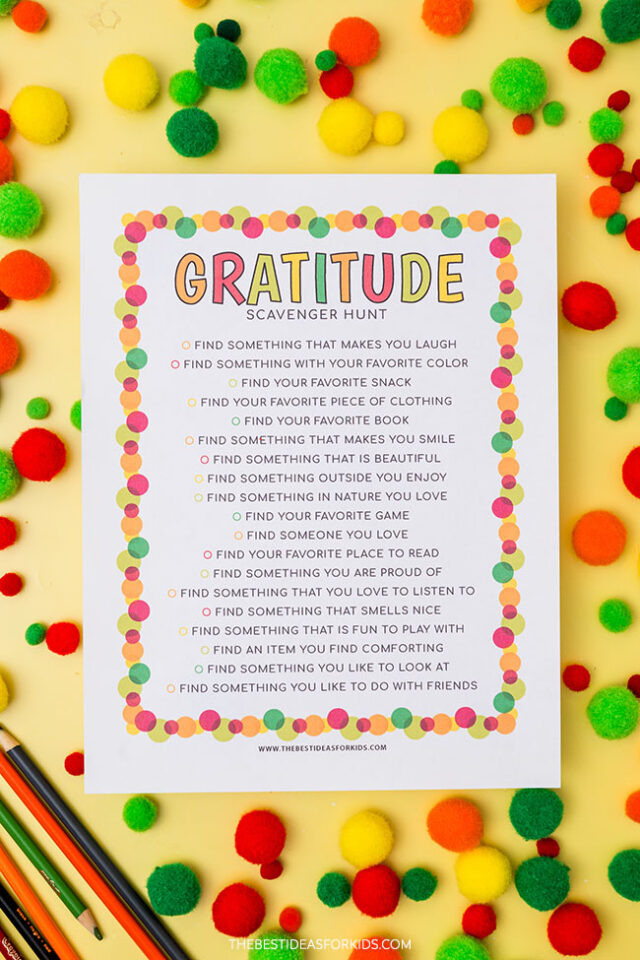 GRATITUDE
SCAVENGER HUNT
FIND SOMETHING THAT MAKES YOU LAUGH
FIND SOMETHING WITH YOUR FAVORITE COLOR
FIND YOUR FAVORITE SNACK
FIND YOUR FAVORITE PIECE OF CLOTHING
FIND YOUR FAVORITE BOOK
FIND SOMETHING THAT MAKES YOU SMILE
FIND SOMETHING THAT IS BEAUTIFUL
FIND SOMETHING OUTSIDE YOU ENJOY
FIND SOMETHING IN NATURE YOU LOVE
FIND YOUR FAVORITE GAME
FIND SOMEONE YOU LOVE
FIND YOUR FAVORITE PLACE TO READ
FIND SOMETHING YOU ARE PROUD OF
FIND SOMETHING THAT YOU LOVE TO LISTEN TO
FIND SOMETHING THAT SMELLS NICE
FIND SOMETHING THAT IS FUN TO PLAY WITH
FIND AN ITEM YOU FIND COMFORTING
FIND SOMETHING YOU LIKE TO LOOK AT
FIND SOMETHING YOU LIKE TO DO WITH FRIENDS
WWW.THEBESTIDEASFORKIDS.COM
THEBESTIDEASFORKIDS.COM